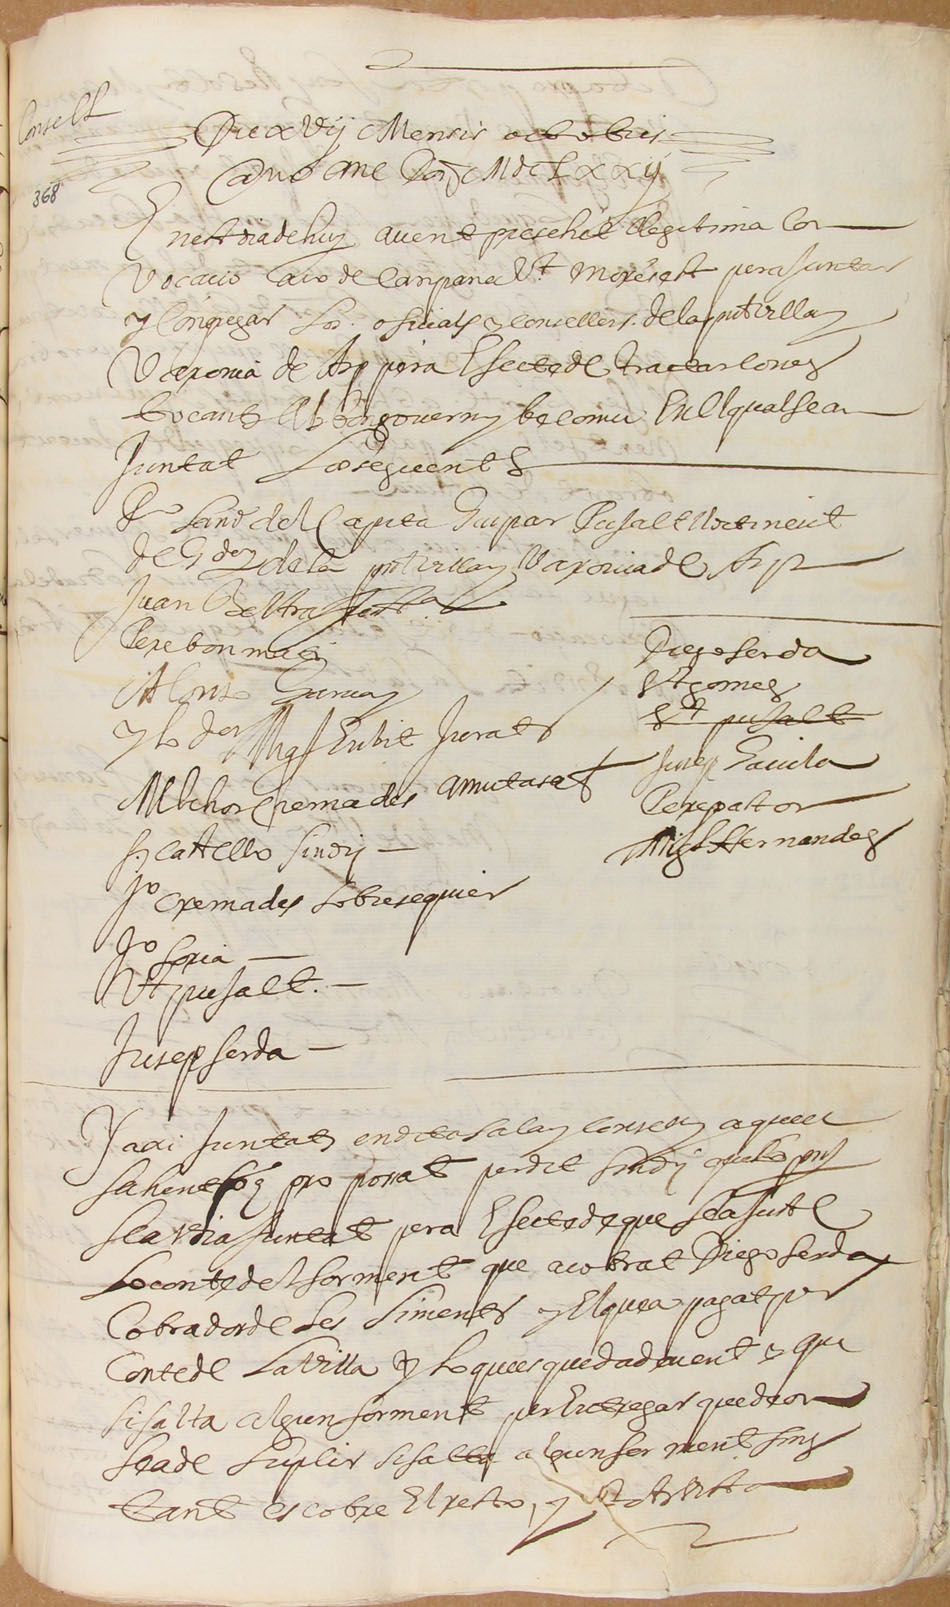 Consell
368
Die xvij Mensis octobris
Anno MDCLxxxj
En est dia de huy avent precehit llegitima con
vocacio a so de campana pera Juntar
y Congregar los oficials y consellers de la pnt villa y
Varonia de Asp pera Efecte de tractar cones
tocants Al bon govern y be comu En El qual sean
Juntat Los seguents
del Capita Gaspar Pujalt lloctinent
de la pnt villa y Varonia de Asp
Juan Beltra
Pere bonmati
Alonso Garcia
y lo dor Migl Jurats
Melchor Cremades Amutasaf
castello Sindij
Jo Cremades sobresequier
Jo Soria
Vt pujalt.
Jusep Serda
Diego Serda
Vt gomes
Vt pujalt
Jusep
Pere pastor
Migl Hernandes
Y axi Juntats en dita sala y consell y aquell
se ha proposat per dit Sindij que lo pnt
se avia Juntat pera Efecte de que sea Juste
Lo conte del forment que a cobrat Diego Serda
Cobrador de Les Siments y El que a pagat per
Conte de La Villa y Lo que es quedad devent y que
si falta algun forment per Entregar quedeor
Sea de Suplir si falta algun forment
tant es cobre El resto, y